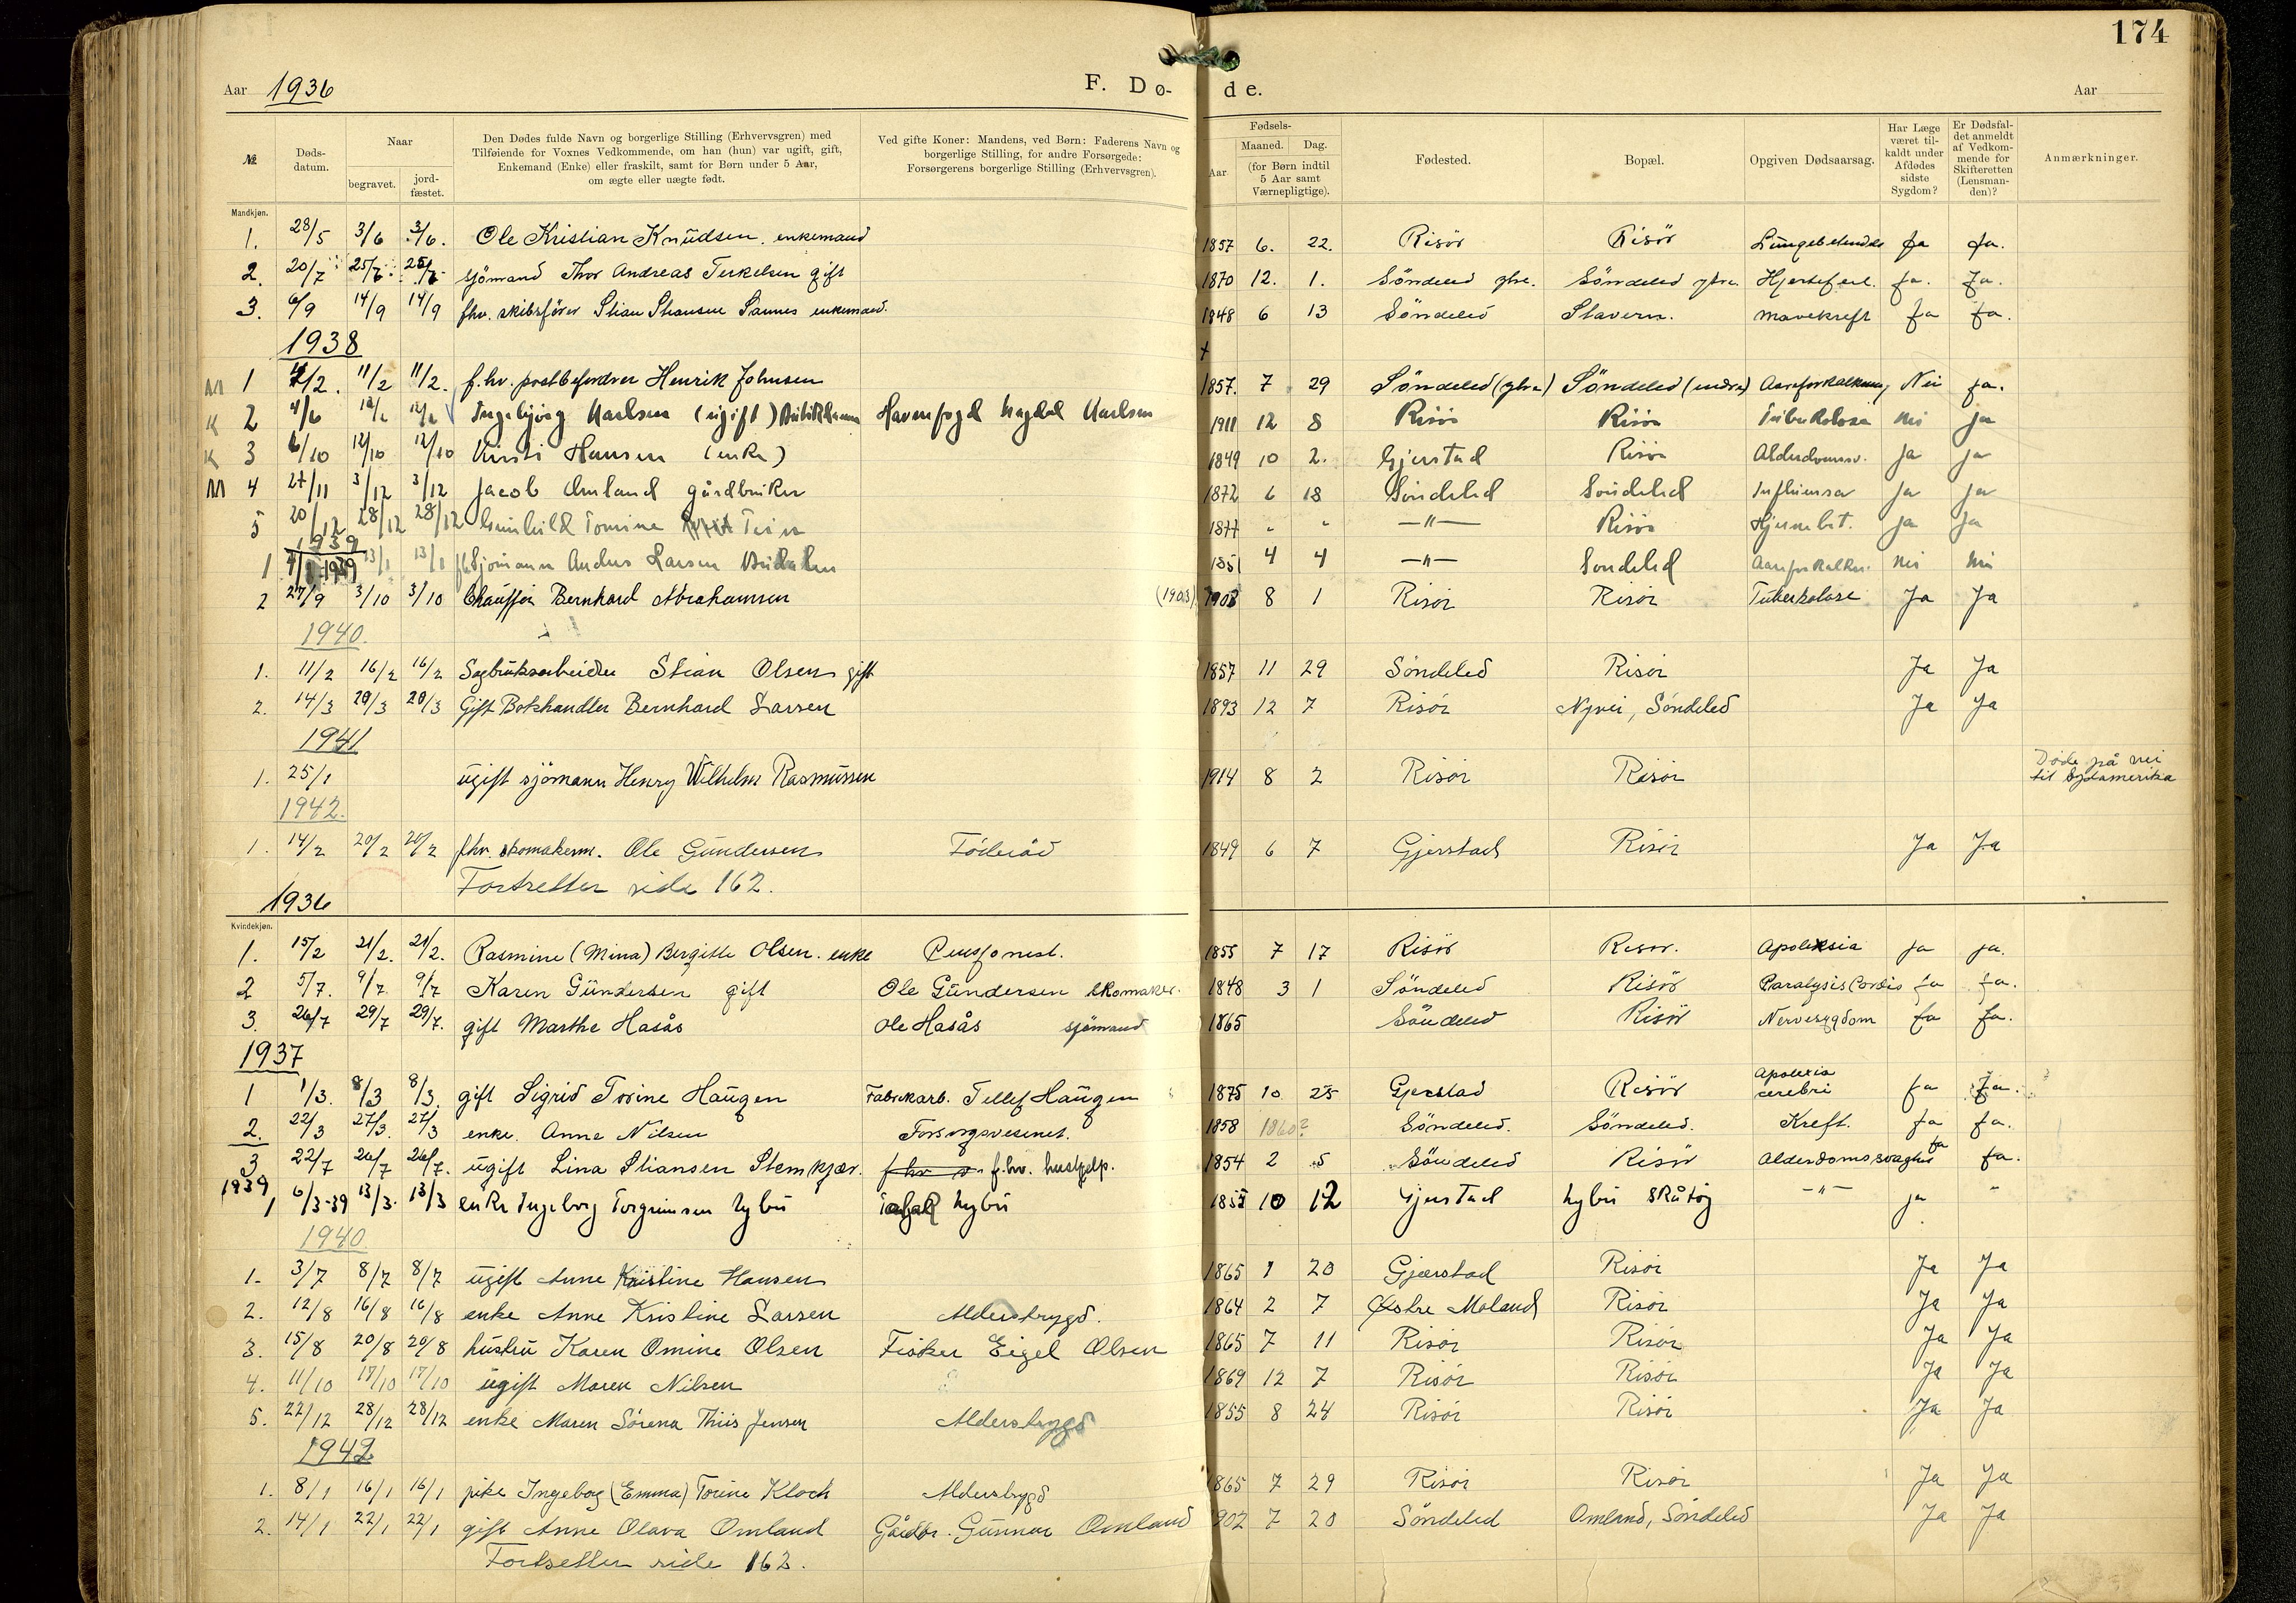 174
Aar 1936
F. Dø-
de.
Aar
№
Døds-
datum.
Naar
begravet.
jord-
fæstet.
Den Dødes fulde Navn og borgerlige Stilling (Erhvervsgren) med
Tilføiende for Voxnes Vedkommende, om han (hun) var ugift, gift,
Enkemand (Enke) eller fraskilt, samt for Børn under 5 Aar,
om ægte eller uægte født.
Ved gifte Koner: Mandens, ved Børn: Faderens Navn og
borgerlige Stilling, for andre Forsørgede:
Forsørgerens borgerlige Stilling (Erhvervsgren).
Fødsels-
Aar
Maaned. Dag.
(for Børn indtil
5 Aar samt
Værnepligtige).
Fødested.
Bopæl.
Opgiven Dødsaarsag.
Har Læge
været til-
kaldt under
Afdødes
sidste
Sygdom?
Er Dødsfal-
det anmeldt
af Vedkom-
mende for
Skifteretten
(Lensman-
den)?
Anmærkninger.
Mandkjøn.
1. 28/5 3/6 3/6. Ole Kristian Knudsen. enkemand 1857 6. 22. Risör Risör Ja Ja.
2. 20/7 25/7 25/7 sjömand Thor Andreas Terkelsen gift 1870 12. 1. Söndeled ytre. Söndeled ytre. Hjertefeil. Ja. Ja.
3. 6/9 14/9 14/9 fhv. skibsförer Stian Stiansen Sannes enkemand. 1848 6 13 Söndeled Stavern. Mavekreft Ja Ja.
1938
M 1 /2. 11/2 11/2. f.hv. postbefordrer Henrik Johnsen 1857. 7 29 Söndeled (ytre) Söndeled (indre) Aareforkalkning Nei Ja.
K 2 4/6 Ingebjörg Karlsen (ugift) Havnefogd Karlsen 1911 12 8 Risör Risör Tuberkolose nei ja
K 3 6/10 12/10 12/10 Kirsti Hansen (enke) 1849 10 2. Gjerstad Risör Alderdomssv. Ja ja
M 4 27/11 3/12 3/12 Jacob Omland gårdbruker 1872 6 18 Söndeled Söndeled Influensa Ja ja
5 20/12 28/12 28/12 Gunhild Tomine 1877 " " —"— Risör Hjernebl. Ja Ja
1939
1 1939 13/1 13/1 fhv Sjömann Anders Larsen 1851 4 4 —"— Söndeled Aareforkalkn. nei nei
2 27/9 3/10 3/10 Chauffør Bernhard Abrahamsen (1903) 1903 8 1 Risör Risör Tuberkolose Ja Ja
1940.
1. 11/2 16/2 16/2 Sagbruksarbeider Stian Olsen gift 1857 11 29 Söndeled Risör Ja Ja
2. 14/3 20/3 20/3 Gift Bokhandler Bernhard Larsen 1893 12 7 Risör Nyvei, Söndeled Ja Ja
1941
1. 25/1 ugift sjömann Henry Wilhelm Rasmussen 1914 8 2 Risör Risör Döde på vei
til Sydamerika
1942.
1. 14/2 20/2 20/2 fhv. skomakerm. Ole Gundersen Föderåd 1849 6 7 Gjerstad Risör Ja Ja
Fortsetter side 162.
1936
Kvindekjøn.
1. 15/2 21/2. 21/2. Rasmine (Mina) Bergitte Olsen. enke Pensjonist. 1855 7 17 Risör Risör. Apoleksia Ja ja.
2 5/7. 9/7. 9/7 Karen Gundersen gift Ole Gundersen skomaker. 1848 3 1 Söndeled Risör Paralysis Cordis Ja Ja.
3. 26/7 29/7 29/7. gift Marthe Hasås Ole Hasås sjömand 1865 Söndeled Risör Nervesygdom Ja Ja.
1937
1 1/3. 8/3 8/3. gift Sigrid Torine Haugen Fabrikarb. Tellef Haugen 1875 10 25 Gjerstad Risör Apolexia
cerebri Ja Ja.
2. 22/3 27/3. 27/3 enke. Anne Nilsen Forsorgsvesenet. 1858 1860? Söndeled. Söndeled. Kreft. Ja Ja.
3 22/7 26/7 26/7. ugift Lina Stiansen Stemkjær. f.hv. hushjelp. 1854 2 5 Söndeled Risör Alderdomssvaghet Ja Ja.
1939
1 6/3-39 13/3. 13/3 enke Ingeborg Torgrimsen Nybu Nybu 1855 10 12 Gjerstad Nybu Skåtöy —"— ja "
1940
1. 3/7 8/7 8/7 ugift Anne Kristine Hansen 1865 1 20 Gjerstad Risör Ja Ja
2. 12/8 16/8 16/8 enke Anne Kristine Larsen Alderstrygd. 1864 2 7 Østre Moland Risör Ja Ja
3. 15/8 20/8 20/8 hustru Karen Omine Olsen Fisker Eigel Olsen 1865 7 11 Risör Risör Ja Ja
4. 11/10 17/10 17/10 ugift Maren Nilsen 1869 12 7 Risör Risör Ja Ja
5. 22/12 28/12 28/12 enke Maren Sörena Thiis Jensen Alderstrygd 1855 8 24 Risör Risör Ja Ja
1942
1. 8/1 16/1 16/1 pike Ingeborg (Emma) Torine Klock Alderstrygd 1865 7 29 Risör Risör Ja Ja
2. 14/1 22/1 22/1 gift Anne Olava Omland Gårdbr. Gunnar Omland 1902 7 20 Söndeled Omland, Söndeled Ja Ja
Fortsetter side 162.